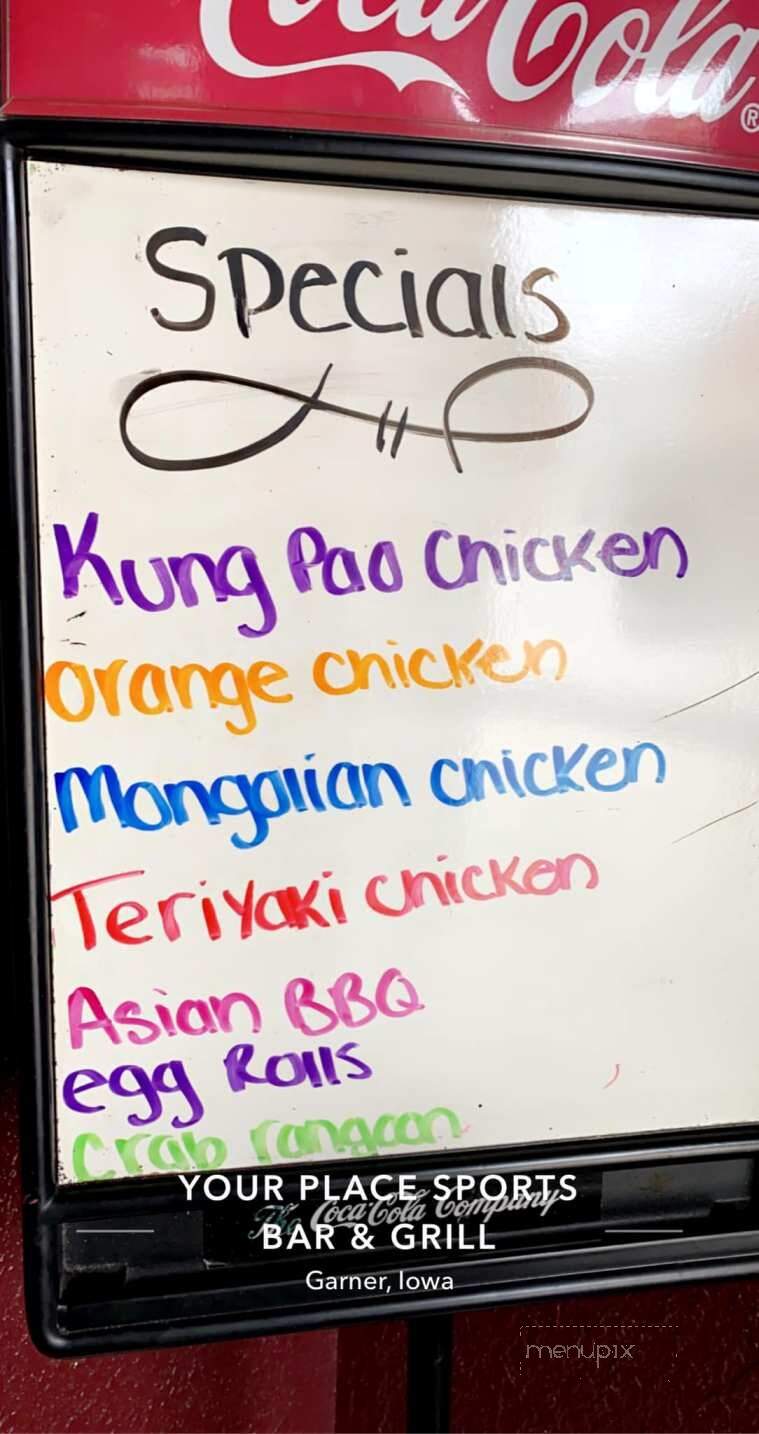 Coca-Cola®
Specials
Kung Pao Chicken
Orange chicken
Mongolian chicken
Teriyaki chicken
Asian BBQ
egg Rolls
crab rangoon
The Coca-Cola Company
YOUR PLACE SPORTS
BAR & GRILL
Garner, Iowa
menupix